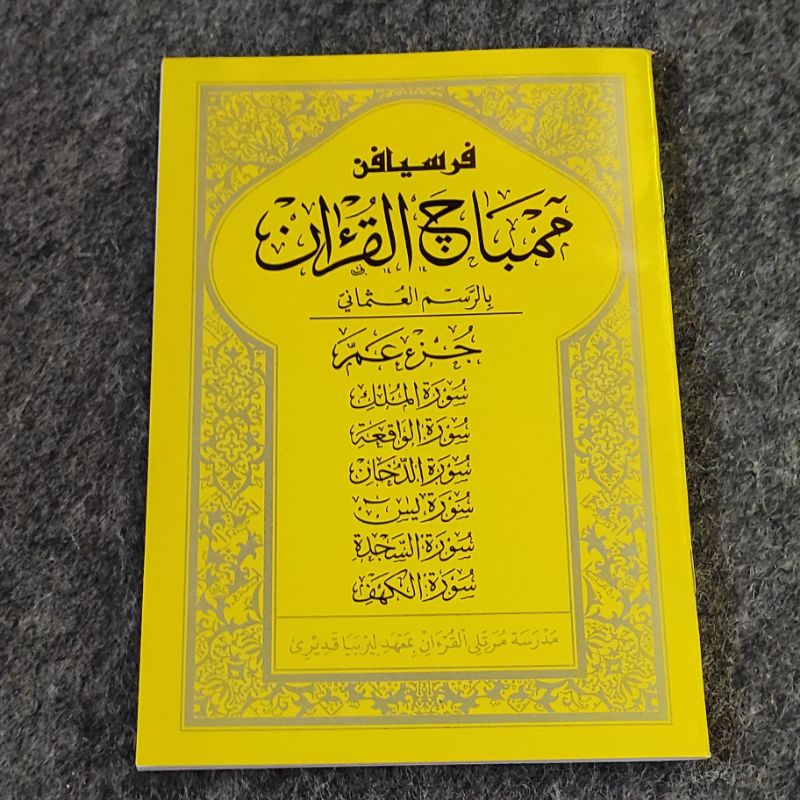 فرسيافن
ممباچ القرءان
بِالرَّسْمِ العُثْمَانِيّ
جُزْء عَمَّ
سُوْرَة المُلْك
سُوْرَة الوَاقِعَة
سُوْرَة الدُّخَان
سُوْرَة يٰسٓ
سُوْرَة السَّجْدَة
سُوْرَة الكَهْف
مَدْرَسَة مُرَتِّلِى القُرْءَانِ بِمَعْهَد لِيْرْبَيَا قَدِيْرِىْ